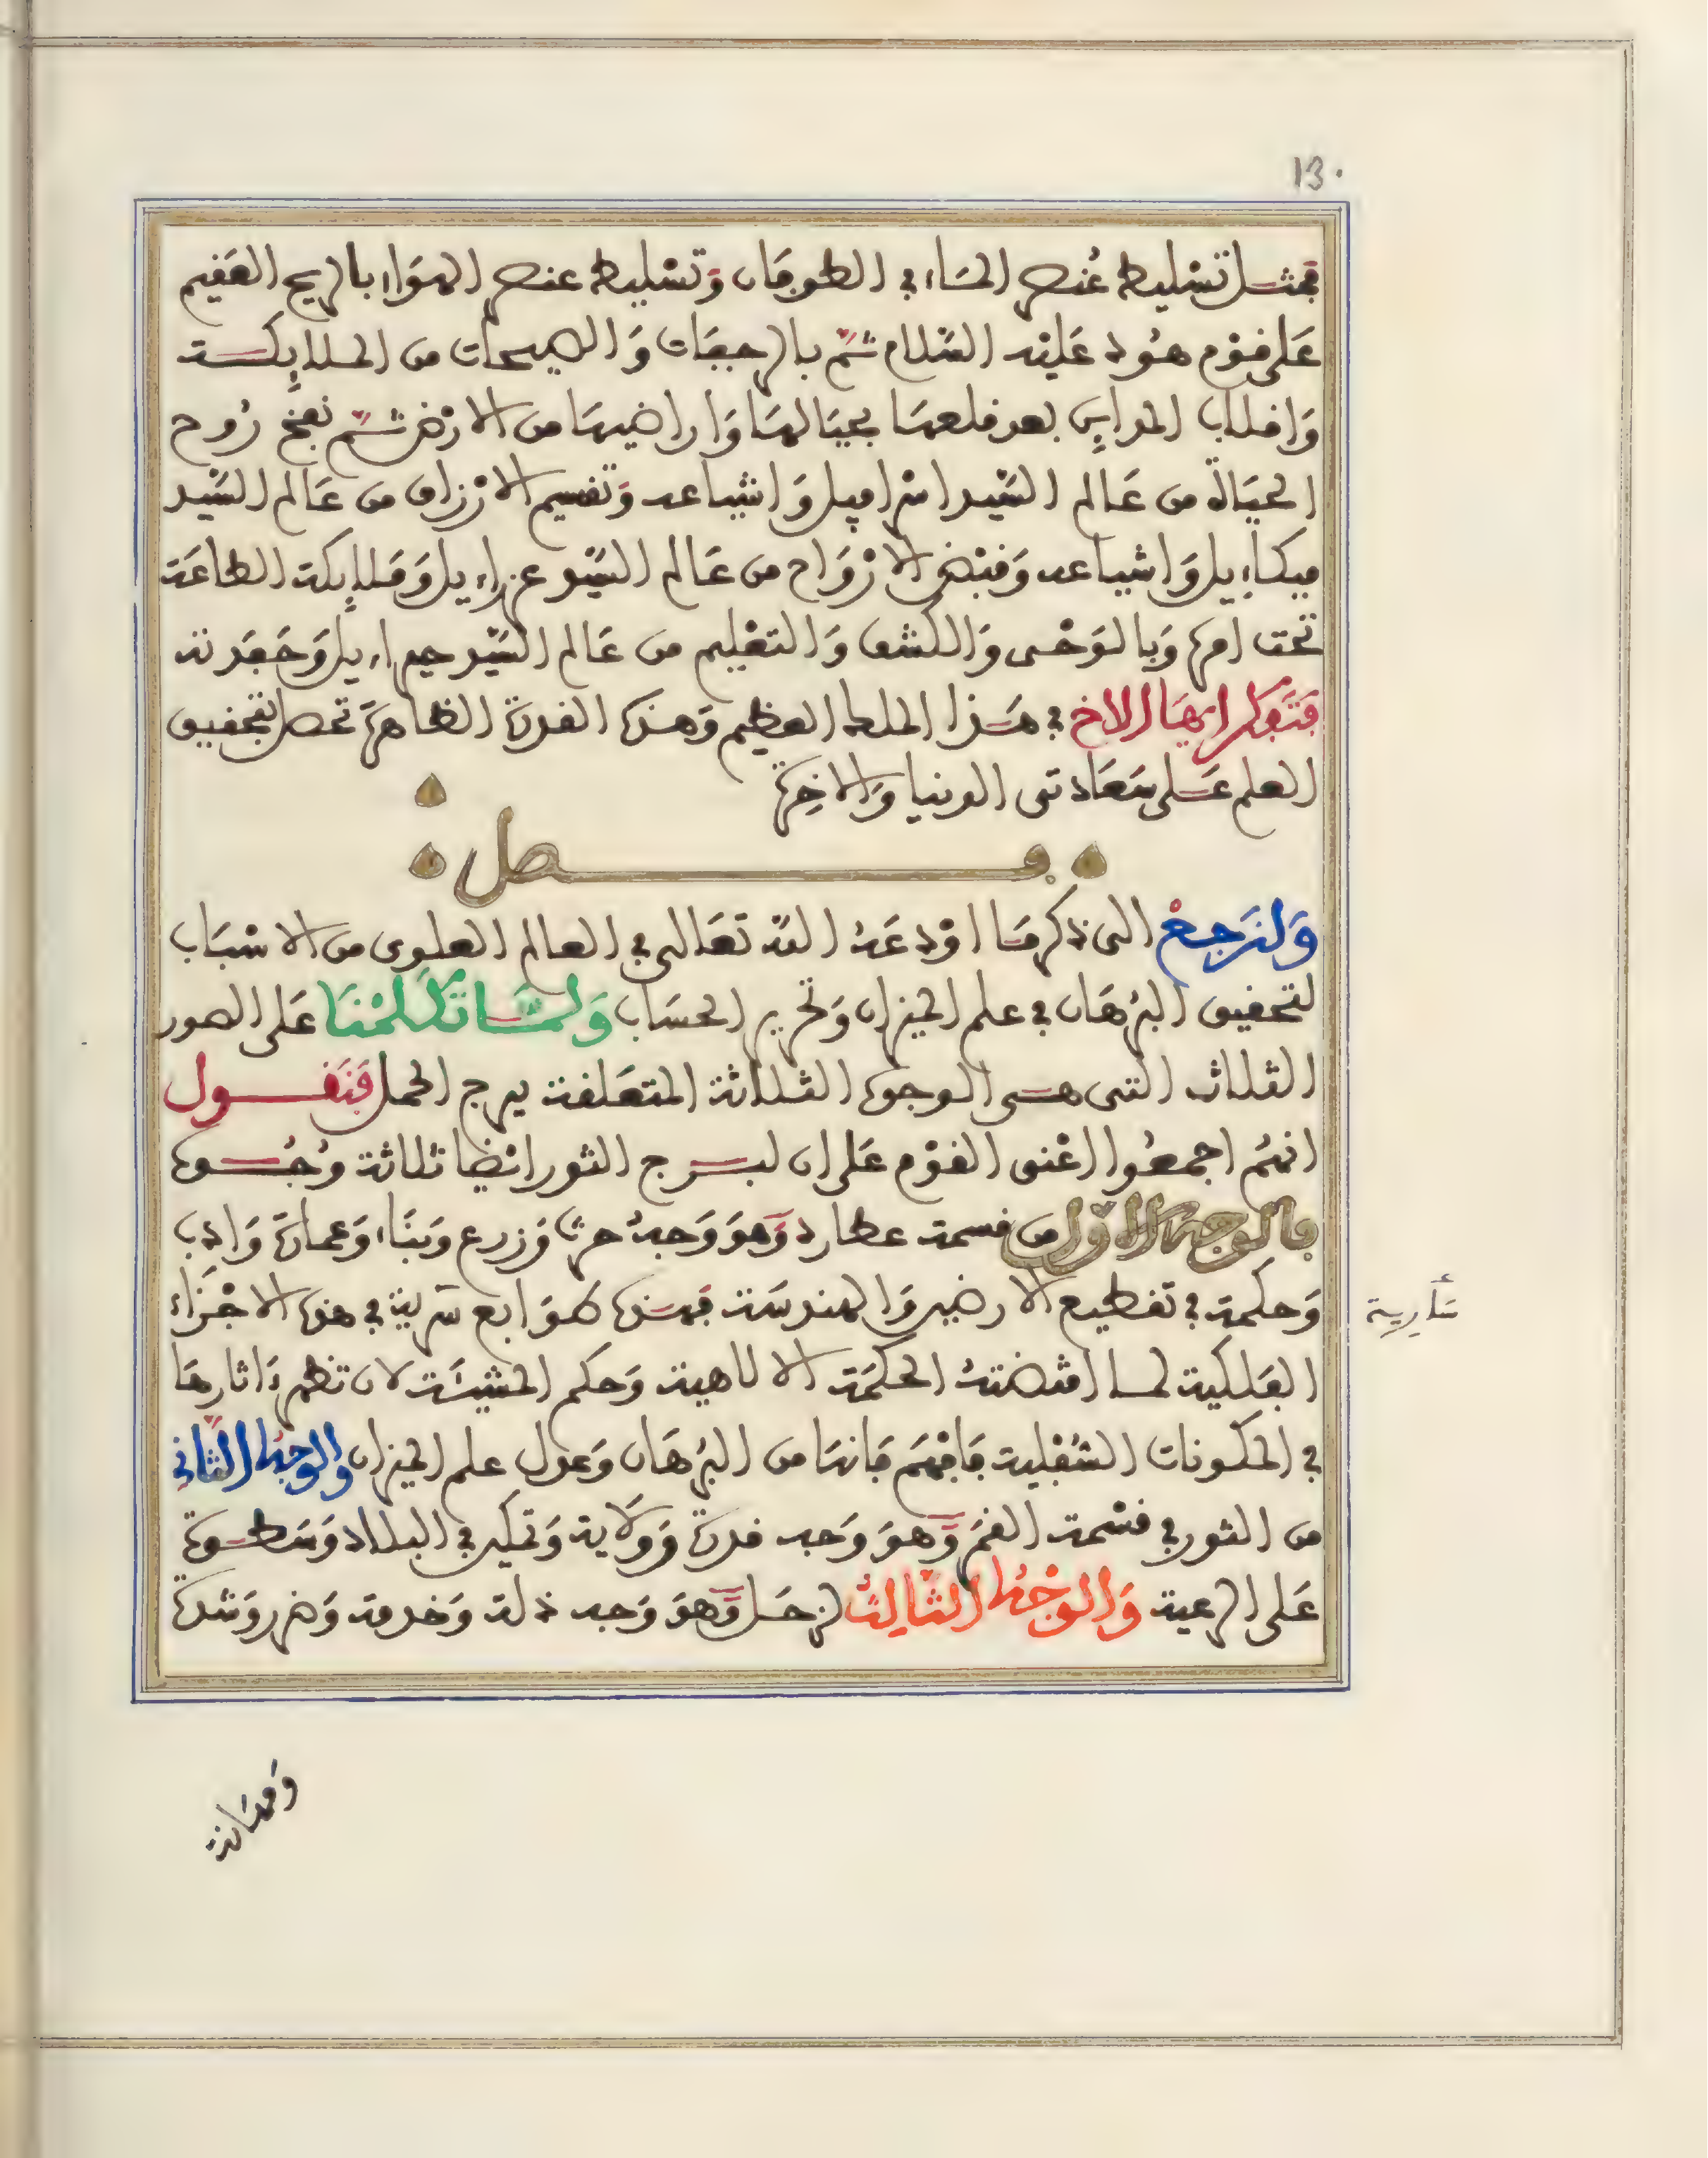 13.
فمثل تسليط عُنصر المَاء في الطوفَان وَتسْليط عنصر الهوَاء بالريح العَفيم
عَلى قوْم هُود عَليْه السَّلام ثمَّ بالرجفَات وَالصيحات من الملايِكة
وَاقلاب المدايِن بعد قلعهَا بجبَالهَا وَاراضيهَا من الارْض ثمَّ نفخ رُوح
الحيَاة من عَالم السَّيد اسْرافيل وَاشياعه وَتقسيم الارْزاق من عَالم السَّيد
ميكاءِيل وَاشياعه وَقبْض الارْوَاح من عَالم السَّيد عزراءيل وَمَلايِكة الطاعَة
تحت امره وَبالوَحْى وَالكشف وَالتعْليم من عَالم السَّيد جبراءيل وَحَفَدته
فَتَفكر ايهَا الاخ في هَذا الملك العظيم وَهذه القدرة الظاهرَة تحصل بتحقيق
العلم عَلى سَعَادتى الدنيا وَالاخِرة
فصل
وَلنَرجعْ الى ذكر مَا اوْدعَهُ اللّه تعَالى في العالم العلوى من الاسْبَاب
لتحقيق البُرهَان في علم الميزان وَتحرير الحسَاب وَلمَّا تَكَلمْنَا عَلى الصور
الثلاث التى هى الوجوه الثلاثة المتعَلقة ببرج الحمل فَنَقول
انهُم اجمعُوا اعْنى القوْم عَلى ان لبرج الثور ايْضا ثلاثة وُجُوه
فالوجه الاوّل من قسمة عطارد وَهوَ وَجهُ حرث وَزرع وَبنَاء وَعمارَة وَادب
وَحكمة في تقطيع الارضين وَالهندسَة فهذه طوَابع سَرية في هذه الاجْزَاء
سَأرية
الفَلكية لما اقتضتهُ الحكمَة الالاهية وَحكم المشيئَة لان تظهر ءاثارهَا
في المكونات السُّفلية فافهَم فانهَا من البُرهَان وَعول علم الميزان وَالوَجهُ الثَّاني
من الثور في قسْمة القمَر وَهوَ وَجه قدرة وَوِلاية وَتمكين في البلاد وَسَطوة
عَلى الرعية وَالوَجْهُ الثَّالِثُ لزحَل وَهوَ وَجه ذلة وَخدمة وَضر وَشدة
وَمهَانة